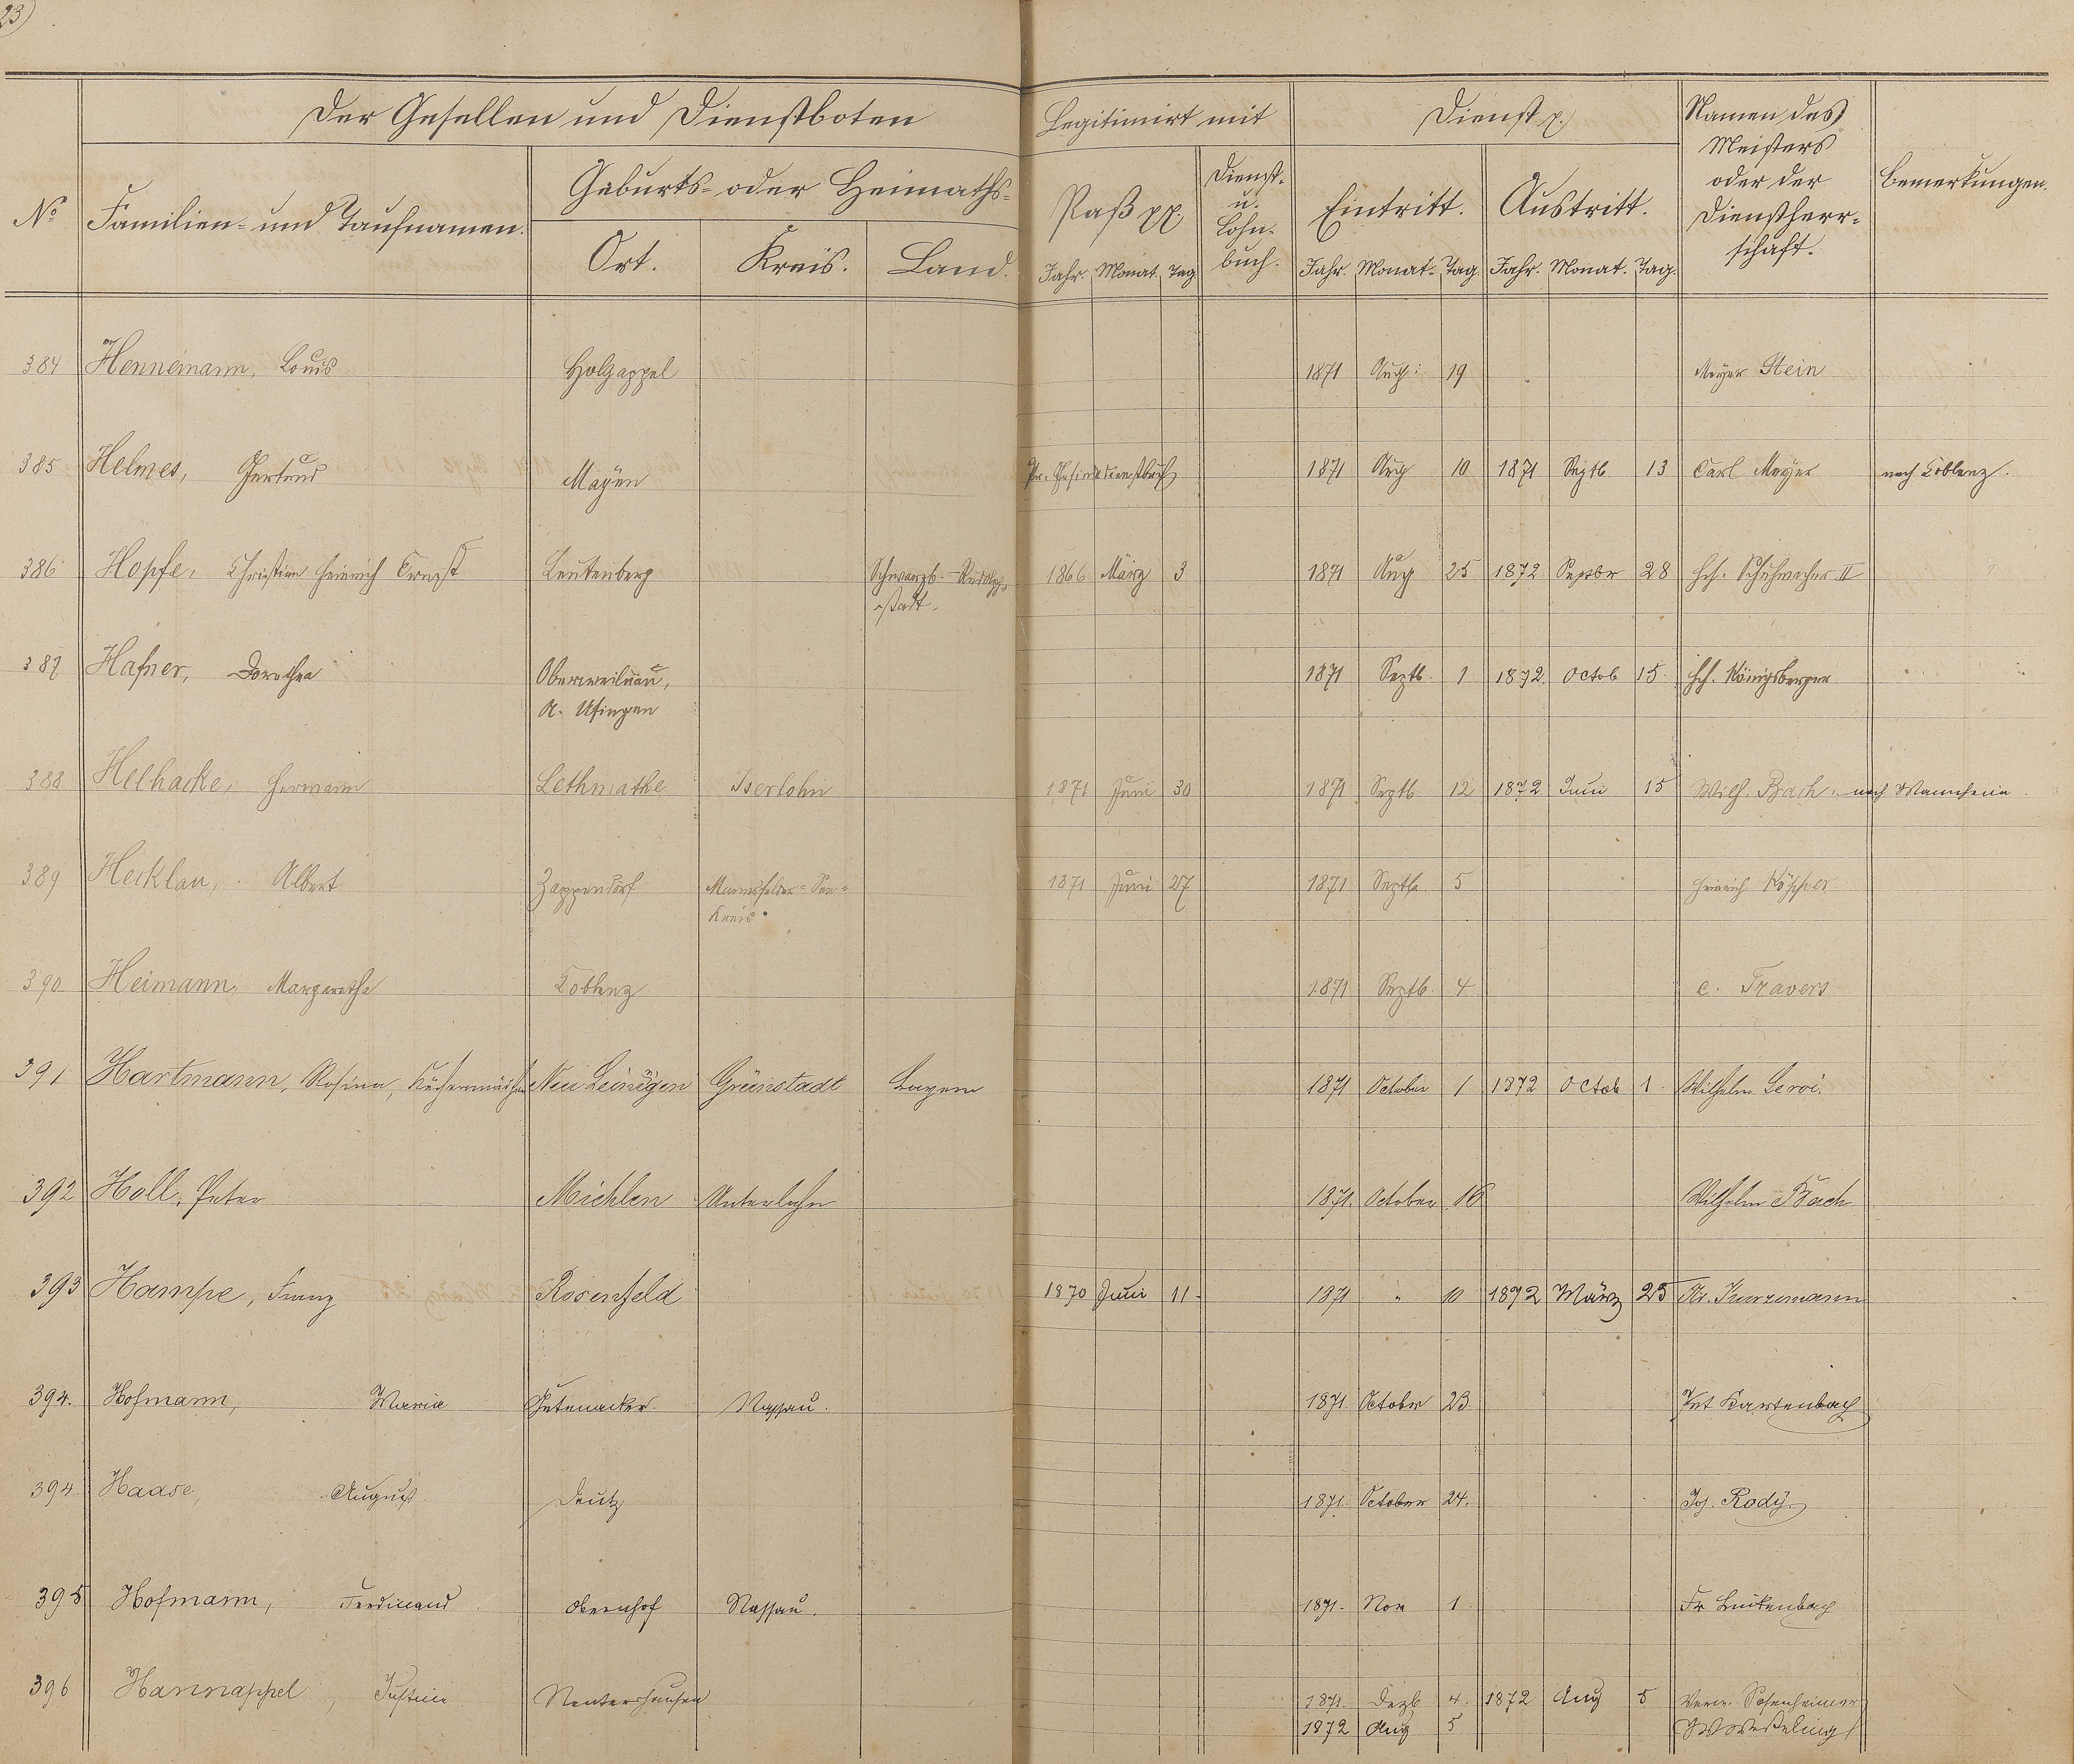 23)
Der Gesellen und Dienstboten
Legitimirt mit
Dienst p.
Namen des Meisters oder der Dienstherrschaft.
Bemerkungen.
No
Familien- und Taufnamen.
Geburts- oder Heimaths-
Ort. Kreis. Land.
Paß pp.
Dienst- u. Lohn- buch.
Eintritt. Austritt.
Jahr. Monat. Tag Jahr. Monat. Tag. Jahr. Monat. Tag.
384 Hennemann, Louis Holzappel 1871 Aug: 19 Meyer Stein
385 Helmes, Gertrud Mayen Pr. Gesindedienstbuch 1871 Aug 10 1871 Septb 13 Carl Meyer nach Coblenz.
386 Hopfe, Christian Heinrich Ernst Leutenberg Schwarzb.-Rudolp- 1866 März 3 1871 Aug 25 1872 Septbr 28 Hch. Schuhmacher II
stadt.
387 Hafner, Dorothea Oberweilnau, 1871 Septb. 1 1872 Octob 15. Hch. Königsberger
A. Usingen
388 Helhacke, Hermann Lethmathe Iserlohn 1871 Juni 30 1871 Septb. 12 1872 Juni 15 Wilh. Bach. nach Mannheim.
389 Hecklau, Albert Zappendorf Mannsfelder-See- 1871 Juni 27 1871 Septb. 5 Heinrich
Kreis.
390 Heimann, Margarethe Coblenz 1871 Septb. 4 C. Travers
391 Hartmann, Rosina, Neu Leinigen Grünstadt Bayern 1871 October 1 1872 Octob 1. Wilhelm Leroi.
392 Holl, Peter Miehlen Unterlahn 1871. October 16 Wilhelm Bach
393 Hampe, Franz Rosenfeld 1870 Juni 11. 1871 " 10 1872 März 25 Kunzemann
394. Hofmann, Maria Gutenacker Nassau. 1871. October 23. Pet Kartenbach
394. Haase, August Deutz 1871. October 24. Jos. Rody.
395 Hofmann, Ferdinand Obernhof Nassau. 1871. Nov 1. Fr
396 Hannappel, Justine Nentershausen 1871. Dezb. 4. 1872 Aug 5
1872 Aug 5